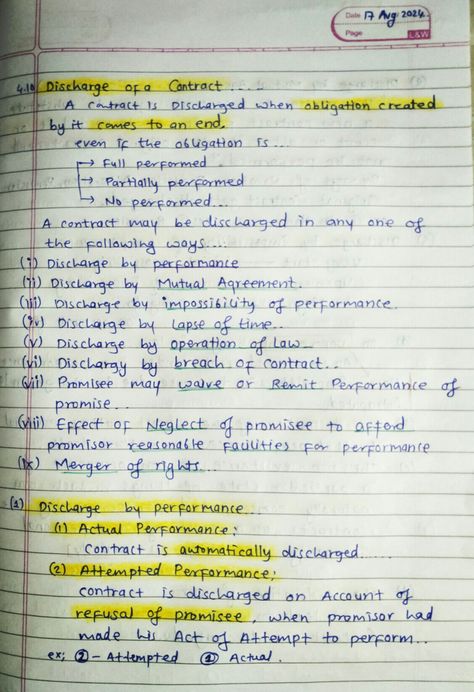 Date 17 Aug 2024.
Page L&W
4.10 Discharge of a Contract.....
A contract is Discharged when obligation created
by it comes to an end.
even if the obligation is...
→ Full performed
→ Partially performed
→ No performed...
A contract may be discharged in any one of
the following ways....
(i) Discharge by performance
(ii) Discharge by Mutual Agreement.
(iii) Discharge by impossibility of performance.
(iv) Discharge by Lapse of time..
(v) Discharge by operation of law..
(vi) Dischargy by breach of contract..
(vii) Promisee may waive or Remit Performance of
promise..
(viii) Effect of Neglect of promisee to afford
promisor reasonable facilities for performance
(ix) Merger of rights...
(1) Discharge by performance..
(1) Actual Performance:
Contract is automatically discharged......
(2) Attempted Performance;
contract is discharged on Account of
refusal of promisee, when promisor had
made his Act of Attempt to perform..
ex; ② - Attempted ① Actual.